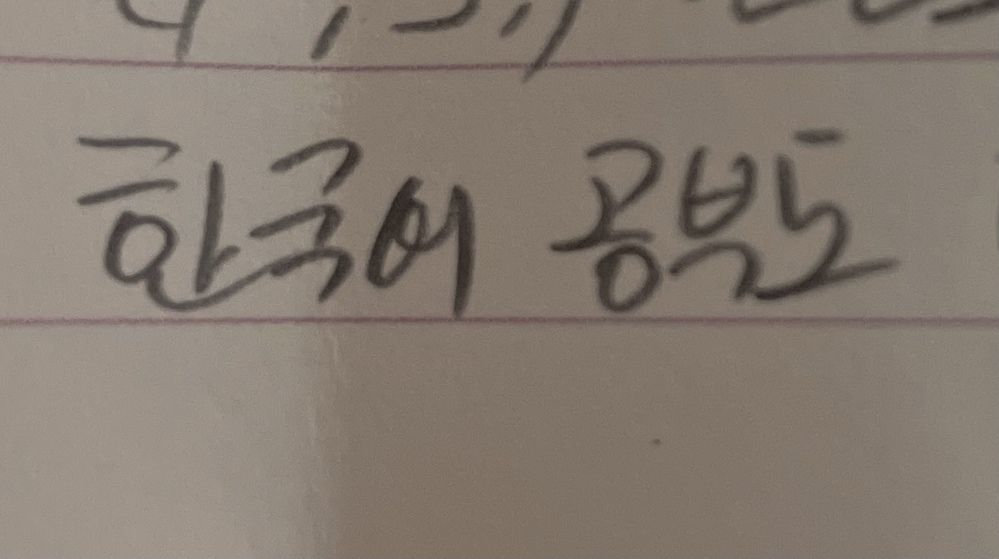 한국어 공부도